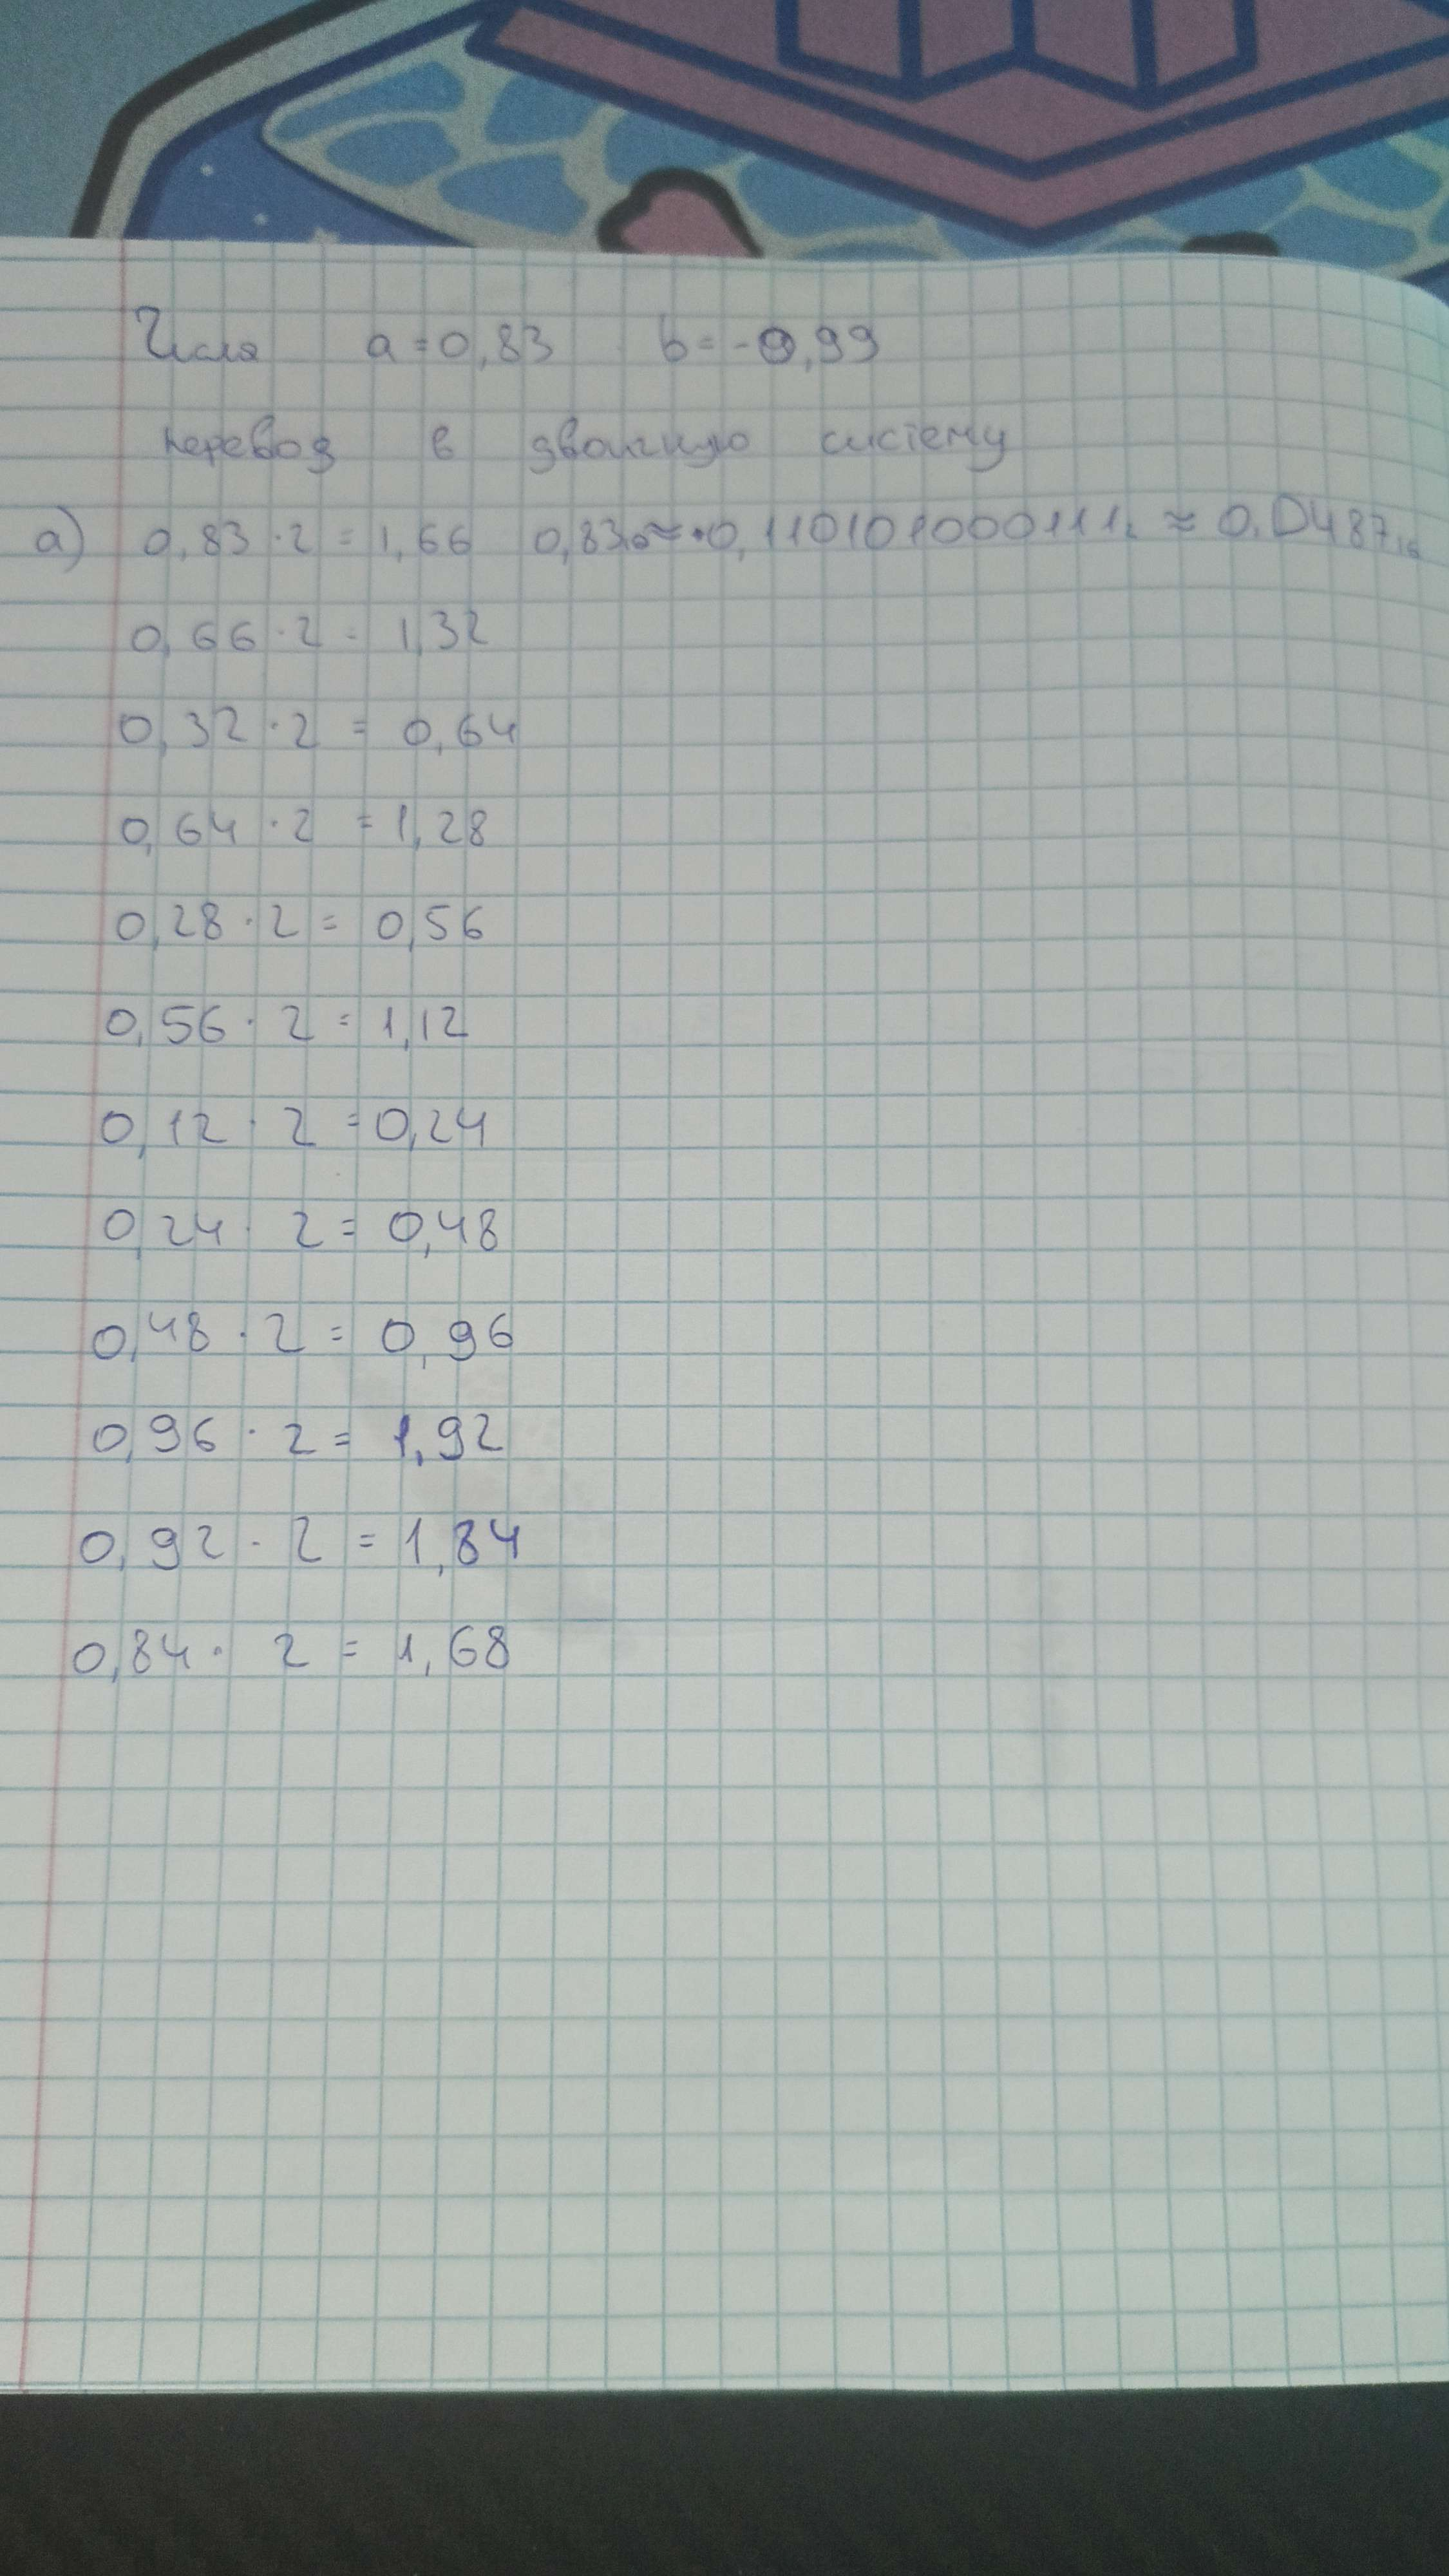 Числа a = 0,83 b = -0,99
перевод в двоичную систему
а) 0,83 · 2 = 1,66 0,83₁₀ ≈ 0,110101000111₂ ≈ 0,D487₁₆
0,66 · 2 = 1,32
0,32 · 2 = 0,64
0,64 · 2 = 1,28
0,28 · 2 = 0,56
0,56 · 2 = 1,12
0,12 · 2 = 0,24
0,24 · 2 = 0,48
0,48 · 2 = 0,96
0,96 · 2 = 1,92
0,92 · 2 = 1,84
0,84 · 2 = 1,68